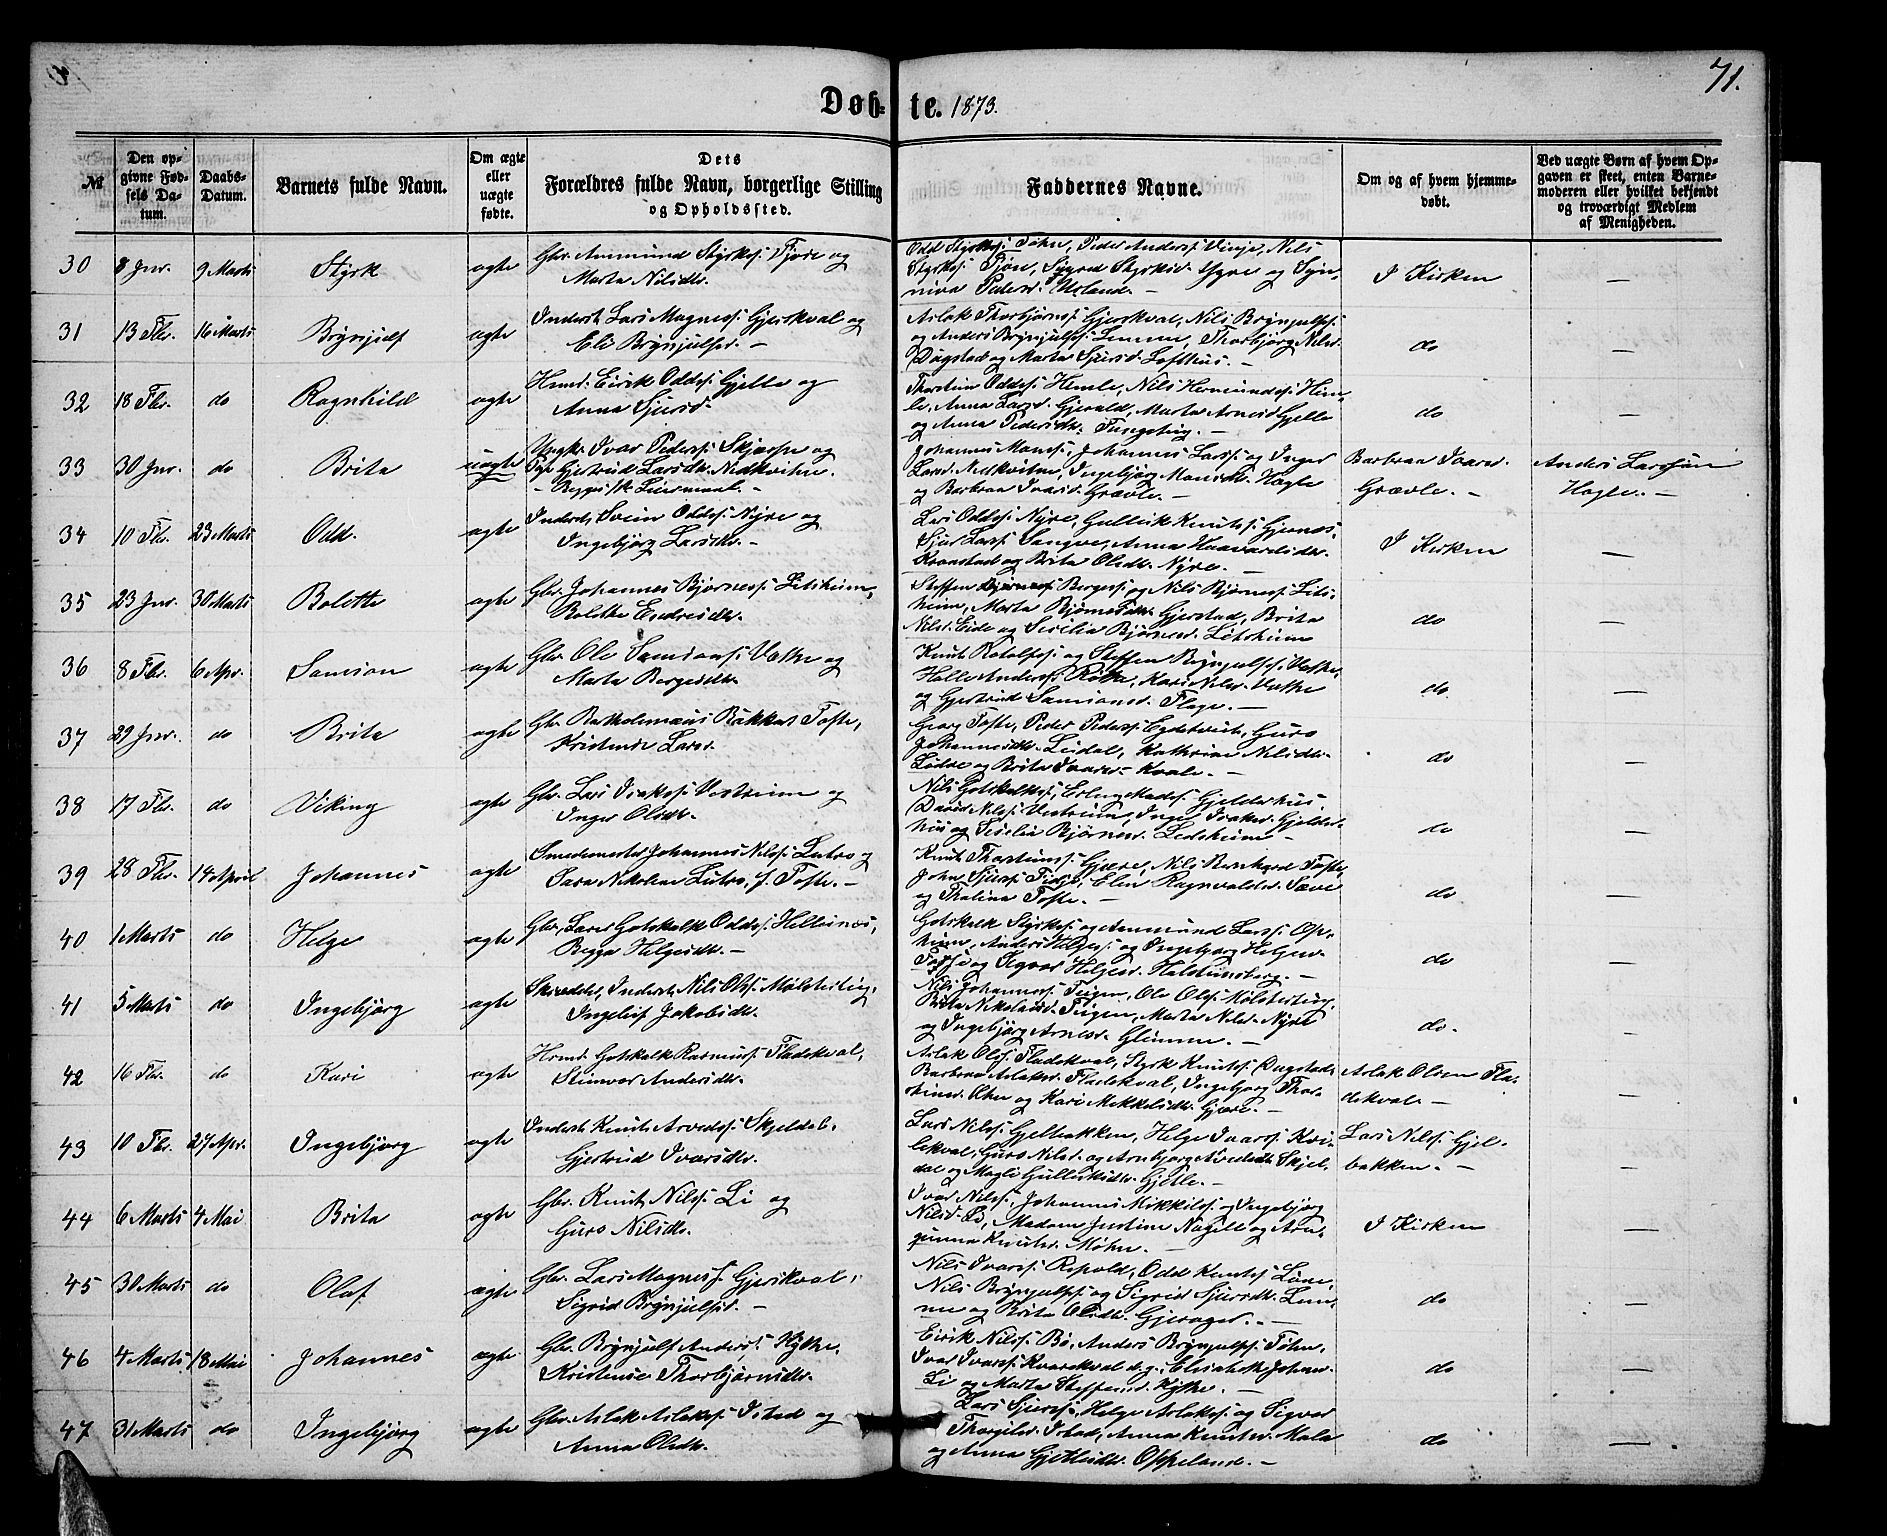 71.
Døb- te. 1873.
№
Den opgivne Fødsels Datum.
Daabs-Datum.
Barnets fulde Navn.
Om ægte eller uægte fødte.
Dets Forældres fulde Navn, borgerlige Stilling og Opholdssted.
Faddernes Navne.
Om og af hvem hjemmedøbt.
Ved uægte Børn af hvem Opgaven er skeet, enten Barnemoderen eller hvilket bekjendt og troværdigt Medlem af Menigheden.
30 8 Jnr. 9 Marts Styrk ægte Gbr. Ammund Styrks. Tjøre og
Marta Nilsdtr.
Odd Styrks. Tøhn, Peder Anders. Vinje, Nils
Styrks. Tjøre, Sigrid Styrksd. Ygre og Syn-
niva Pedersd. Urland. —
I Kirken —
31 13 Fbr. 16 Marts Brynjulf ægte Inderst Lars Magness. Gjerskval og
Eli Brynjulfsd. —
Aslak Thorbjørns. Gjerskval, Nils Brynjulfs.
og Anders Brynjulfs. Lemme, Thorbjørg Nilsd.
Dugstad og Marta Sjursd. Lofthus. —
do —
32 18 Fbr. do Ragnhild ægte Hmd. Eirik Odds. Gjelle og
Anna Sjursd.
Thorstein Odds. Hemle, Nils Hermunds. Hem-
le, Anna Larsd. Gjerald, Marta Arnesd. Gjelle
og Anna Pedersdtr. Tungeteig. —
do —
33 30 Jnr. do Brita uægte Ungk. Ivar Peders. Skjerpe og
Pige Gjertrud Larsdtr. Nedkvitne.
— Begges 1ste Leiermaal. —
Johannes Mons., Johannes Larss. og Inger
Larsd. Nedkvitne, Ingebjørg Monsdtr. Hagle
og Barbraa Ivarsd. Grævle. —
Barbraa Ivarsd.
Grævle. —
Anders Larssøn
Hagle. —
34 10 Fbr. 23 Marts Odd. ægte Inderst Svein Odds. Nyre og
Ingebjørg Larsdtr. —
Lars Odds. Nyre, Gulleik Knuts. Gjernes,
Sjur Larss. Sangve, Anna Haavardsdtr.
Kronstad og Brita Olsdtr. Nyre. —
I Kirken —
35 23 Jnr. 30 Marts Bolette ægte Gbr. Johannes Bjørness. Litsheim,
Bolette Endresdtr.
Steffen Bergess. og Nils Bjørness. Lits-
heim, Marta Bjørnesdtr. Gjerstad, Brita
Nilsd. Eide og Sesilia Bjørnesd. Litsheim
do —
36 8 Fbr. 6 Apr. Samson ægte Gbr. Ole Samsons. Væthe og
Marta Bergesdtr.
Knut Rotolfs. og Steffen Brynjulfs. Væthe,
Halle Anders. Røthe, Kari Nilsd. Væthe
og Gjertrud Samsonsd. Flage. —
do. —
37 29 Jnr. do Brita ægte Gbr. Bartholomæus Bakkas Tofte,
Kristense Larsd.
Georg Tofte, Peder Peders. Egdetveit, Guro
Johannesdtr. Leidal, Kathrine Nilsdtr.
Lødve og Brita Ivarsd. Kvale. —
do —
38 17 Fbr. do Viking ægte Gbr. Lars Isaks. Vestreim og
Inger Olsdtr.
Nils Gotskalks., Erling Mads. Gjelderhus,
David Nilss. Vestreim, Inger Isaksd. Gjelder-
hus og Sesilia Bjørnesd. Ledsheim —
do —
39 28 Fbr. 14 April Johannes ægte Smedemester Johannes Nilss. Lutro og
Sara Nikoline Lutro, f. Tofte. —
Knut Thorsteins. Gjære, Nils Bernhard Tofte,
John Sjurss. Finge, Elen Ragnvaldsd. Sæve
og Thalina Tofte. —
do —
40 1 Marts do Helge ægte Gbr. Lars Gotskalk Odds. Hellesnes,
Begga Helgesdtr. —
Gotskalk Styrks. og Ammund Larss. Op-
heim, Anders Helges. og Ingebjørg Helgesd.
og Sigvor Helgesd. Halsteinsberg. —
do —
41 5 Marts do Ingebjørg ægte Skrædder, Inderst Nils Ols. Mølsterteig,
Ingeleif Jakobsdtr.
Nils Johanness. Teigen, Ole Ols. Mølsterteig,
Brita Nikolaisd. Teigen, Marta Nilsd. Nyre
og Ingebjørg Arnesd. Glimme. —
do. —
42 16 Fbr. do Kari ægte Hmd. Gotskalk Rasmuss. Fladekval,
Steinvor Andersdtr.
Aslak Ols. Fladekval, Styrk Knuts. Dugstad,
Barbraa Aslaksd. Fladekval, Ingebjørg Thor-
steinsd. Øhn og Kari Mikkelsdtr. Gjære. —
Aslak Olsen Fla-
dekval —
—
43 10 Fbr. 27 Apr. Ingebjørg ægte Inderst Knut Arveds. Skjeldal.
Gjertrud Ivarsdtr.
Lars Nilss. Gjelbakken, Helge Ivarss. Kvi-
lekval, Guro Nilsd. og Arnbjørg Arvedsdtr. Skjel-
dal og Magli Gulleiksdtr. Gjelle. —
Lars Nilss. Gjel-
bakken. —
—
44 6 Marts 4 Mai Brita ægte Gbr. Knut Nilss. Li og
Guro Nilsdtr.
Ivar Nilss., Johannes Mikkels. og Ingebjørg
Nilsd. Li, Madam Justine Nagell og Arn-
gunna Knutsd. Møhn. —
I Kirken —
45 30 Marts do Olaf ægte Gbr. Lars Magness. Gjerskval,
Sigrid Brynjulfsd. —
Nils Ivarss. Repold, Odd Knuts. Løne,
Nils Brynjulfs. og Sigrid Sjursdtr. Lem-
me og Brita Olsdtr. Gjerager. —
do —
46 4 Marts 18 Mai Johannes ægte Gbr. Brynjulf Anders. Hythe,
Kristense Thorbjørnsdtr.
Eirik Nilss. Bø, Anders Brynjulfs. Tøhn,
Ivar Ivarss. Kvarekval d.y., Elisabeth Johnsd.
Li og Marta Steffensd. Hythe. —
do —
47 31 Marts do Ingebjørg ægte Gbr. Aslak Aslaks. Istad og
Anna Olsdtr.
Lars Sjurss., Helge Aslaks. og Sigvor
Thorgilsd. Istad, Anna Knutsd. Mala
og Anna Gjethledtr. Oppeland. —
do —